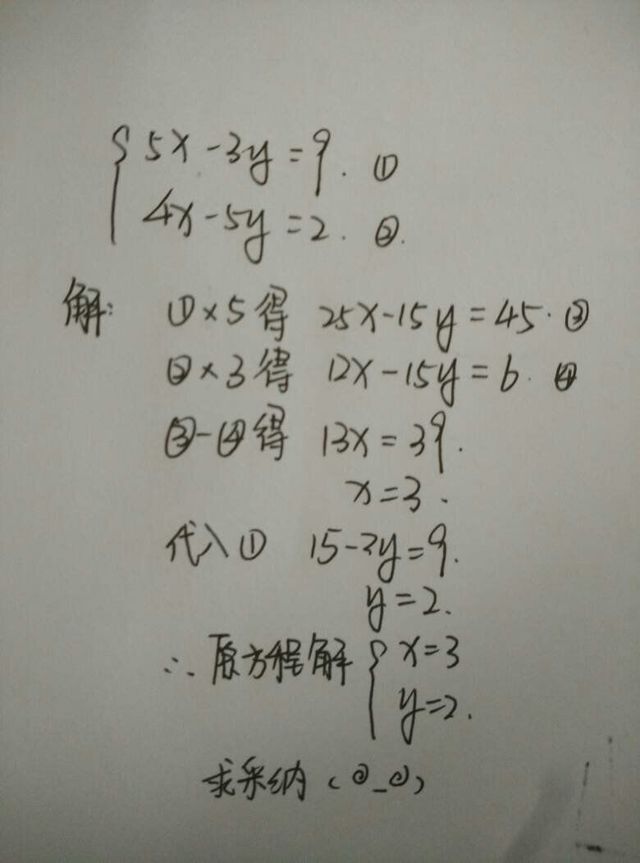 {5x-3y=9. ①
4x-5y=2. ②.
解: ①×5得 25x-15y=45. ③
②×3得 12x-15y=6. ④
③-④得 13x=39.
x=3.
代入① 15-3y=9.
y=2.
∴原方程解{x=3
y=2.
求采纳(⊙_⊙)